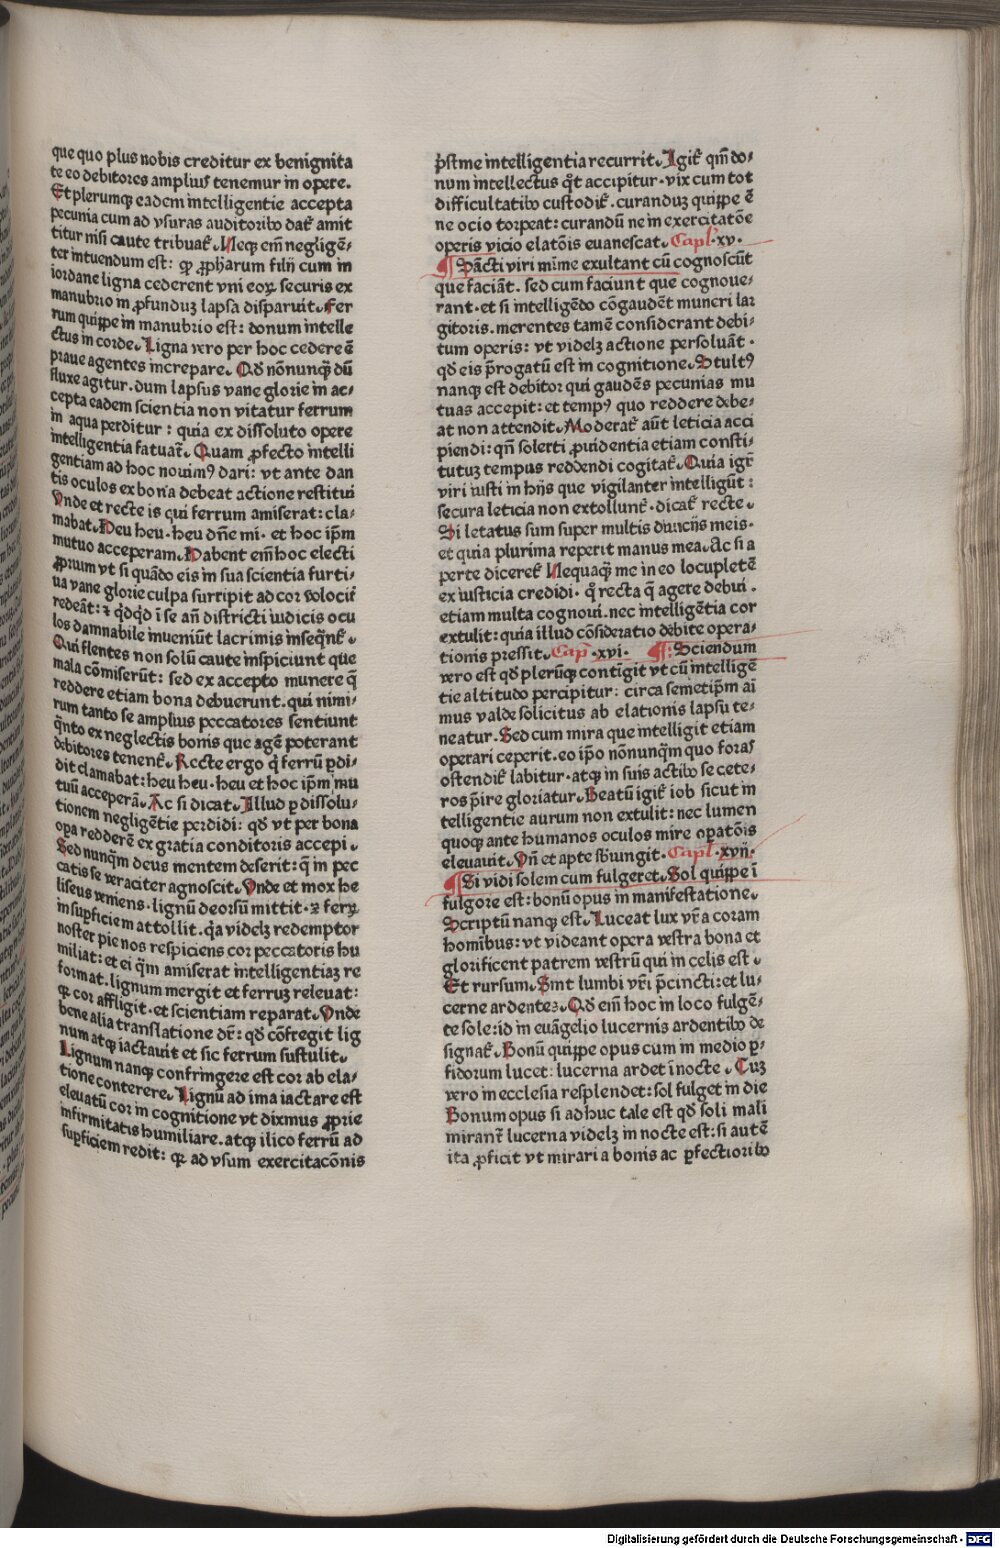 que quo plus nobis creditur ex benignita
te eo debitores amplius tenemur in opere.
Et plerumqꝫ eadem intelligentie accepta
pecunia cum ad vsuras auditoribꝰ dat᷑ amit
titur nisi caute tribuat᷑. Neqꝫ em̄ negligē-
ter intuendum est: ꝙ ꝓpharum filij cum in
iordane ligna cederent vni eoꝝ securis ex
manubrio in ꝓfunduꝫ lapsa disparuit. Fer
rum quippe in manubrio est: donum intelle
ctus in corde. Ligna vero per hoc cedere ē
praue agentes increpare. Qd̄ nōnunqꝫ dū
fluxe agitur. dum lapsus vane glorie in ac-
cepta eadem scientia non vitatur ferrum
in aqua perditur: quia ex dissoluto opere
intelligentia fatuat᷑. Quam ꝓfecto intelli
gentiam ad hoc nouimꝰ dari: vt ante dan
tis oculos ex bona debeat actione restitui
Vnde et recte is qui ferrum amiserat: cla-
mabat. Heu heu. heu dn̄e mi. et hoc ip̄m
mutuo acceperam. Habent em̄ hoc electi
ꝓprium vt si quādo eis in sua scientia furti-
ua vane glorie culpa surripit ad cor velocit᷑
redeāt: ⁊ qd̓qd̓ ī se añ districti iudicis ocu
los damnabile inueniūt lacrimis inseqn̄t᷑.
Qui flentes non solū caute inspiciunt que
mala cōmiserūt: sed ex accepto munere q̄
reddere etiam bona debuerunt. qui nimi-
rum tanto se amplius peccatores sentiunt
q̄nto ex neglectis bonis que agē poterant
debitores tenent᷑. Recte ergo q̓ ferrū ꝑdi-
dit clamabat: heu heu. heu et hoc ip̄m mu
tuū acceperā. Ac si dicat. Illud ꝑ dissolu-
tionem negligētie perdidi: qd̄ vt per bona
opa redderē ex gratia conditoris accepi.
Sed nunqm̄ deus mentem deserit: q̄ in pec
catis se veraciter agnoscit. Vnde et mox he
liseus veniens. lignū deorsū mittit. ⁊ ferꝝ
in suꝑficiem attollit. q̓a videlꝫ redemptor
noster pie nos respiciens cor peccatoris hu
miliat: et ei q̄m amiserat intelligentiaꝫ re
format. lignum mergit et ferruꝫ releuat:
ꝙ cor affligit. et scientiam reparat. Vnde
bene alia translatione dr̄: qd̄ cōfregit lig
num atqꝫ iactauit et sic ferrum sustulit.
Lignum nanqꝫ confringere est cor ab ela-
tione conterere. Lignū ad ima iactare est
eleuatū cor in cognitione vt dixmus ꝓprie
infirmitatis humiliare. atqꝫ ilico ferrū ad
suꝑficiem redit: ꝙ ad vsum exercitacōnis
p̓stine intelligentia recurrit. Igit᷑ qm̄ do-
num intellectus q̓t accipitur. vix cum tot
difficultatibꝰ custodit᷑. curanduꝫ quippe ē
ne ocio torpeat: curandū ne in exercitatōe
operis vicio elatōis euanescat. Capl̄ .xv.
Sācti viri mīme exultant cū cognoscūt
que faciāt. sed cum faciunt que cognoue-
rant. et si intelligēdo cōgaudēt muneri lar
gitoris. merentes tamē considerant debi-
tum operis: vt videlꝫ actione persoluāt.
qd̄ eis p̄rogatū est in cognitione. Stultꝰ
nanqꝫ est debitor qui gaudēs pecunias mu
tuas accepit: et tempꝰ quo reddere debe-
at non attendit. Moderat᷑ aūt leticia acci
piendi: qn̄ solerti ꝓuidentia etiam consti-
tutuꝫ tempus reddendi cogitat᷑. Quia igr̄
viri iusti in hijs que vigilanter intelligūt:
secura leticia non extollunt᷑. dicat᷑ recte.
Si letatus sum super multis diuicijs meis.
et quia plurima reperit manus mea. Ac si a
perte diceret᷑ Nequaqꝫ me in eo locupletē
ex iusticia credidi. q̓ recta q̄ agere debui.
etiam multa cognoui. nec intelligētia cor
extulit: quia illud cōsideratio debite opera-
tionis pressit. Cap̄ .xvi. Sciendum
vero est qd̄ plerūqꝫ contīgit vt cū intelligē
tie altitudo percipitur: circa semetip̄m ai
mus valde solicitus ab elationis lapsu te-
neatur. Sed cum mira que intelligit etiam
operari ceperit. eo ip̄o nōnunqm̄ quo foras
ostendit᷑ labitur. atqꝫ in suis actibꝰ se cete-
ros p̄ire gloriatur. Beatū igit᷑ iob sicut in
telligentie aurum non extulit: nec lumen
quoqꝫ ante humanos oculos mire opatōis
eleuauit. Vn̄ et apte sbiungit. Capl̄ .xvij.
Si vidi solem cum fulgeret. Sol quippe ī
fulgore est: bonū opus in manifestatione.
Scriptū nanqꝫ est. Luceat lux vr̄a coram
hominibus: vt videant opera vestra bona et
glorificent patrem vestrū qui in celis est.
Et rursum. Sint lumbi vr̄i p̄cincti: et lu-
cerne ardentes. Qd̄ em̄ hoc in loco fulgē-
te sole: id in euāgelio lucernis ardentibꝰ de
signat᷑. Bonū quippe opus cum in medio ꝑ-
fidorum lucet: lucerna ardet in octe. Cuꝫ
vero in ecclesia resplendet: sol fulget in die
Bonum opus si adhuc tale est qd̄ soli mali
mirant᷑ lucerna videlꝫ in nocte est: si autē
ita ꝓficit vt mirari a bonis ac ꝑfectioribꝰ
Digitalisierung gefördert durch die Deutsche Forschungsgemeinschaft - DFG